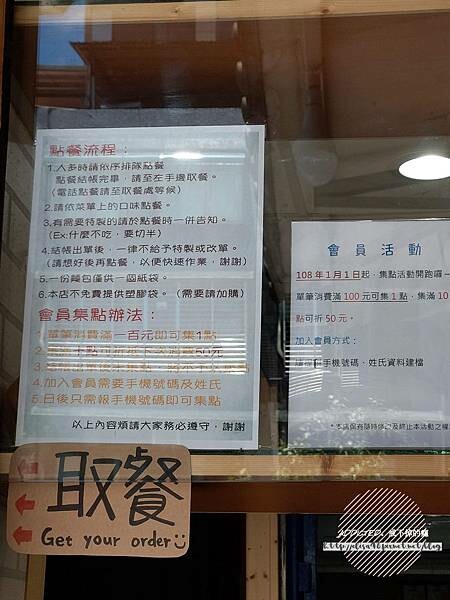 點餐流程：
1.人多時請依序排隊點餐
點餐結帳完畢，請至左手邊取餐。
（電話點餐請至取餐處等候）
2.請依菜單上的口味點餐。
3.有需要特製的請於點餐時一併告知。
(Ex:什麼不吃，要切半)
4.結帳出單後，一律不給予特製或改單。
（請想好後再點餐，以便快速作業，謝謝）
5.一份麵包僅供一個紙袋。
6.本店不免費提供塑膠袋。（需要請加購）
會員集點辦法：
1.單筆消費滿一百元即可集1點
50元
4.加入會員需要手機號碼及姓氏
5.日後只需報手機號碼即可集點
以上內容煩請大家務必遵守，謝謝
會員活動
108年1月1日起，集點活動開跑囉
單筆消費滿100元可集1點，集滿10
點可折50元。
加入會員方式：
手機號碼、姓氏資料建檔
*本店保有隨時修改及終止本活動之權
取餐
Get your order
ADDICTED. 戒不掉的癮